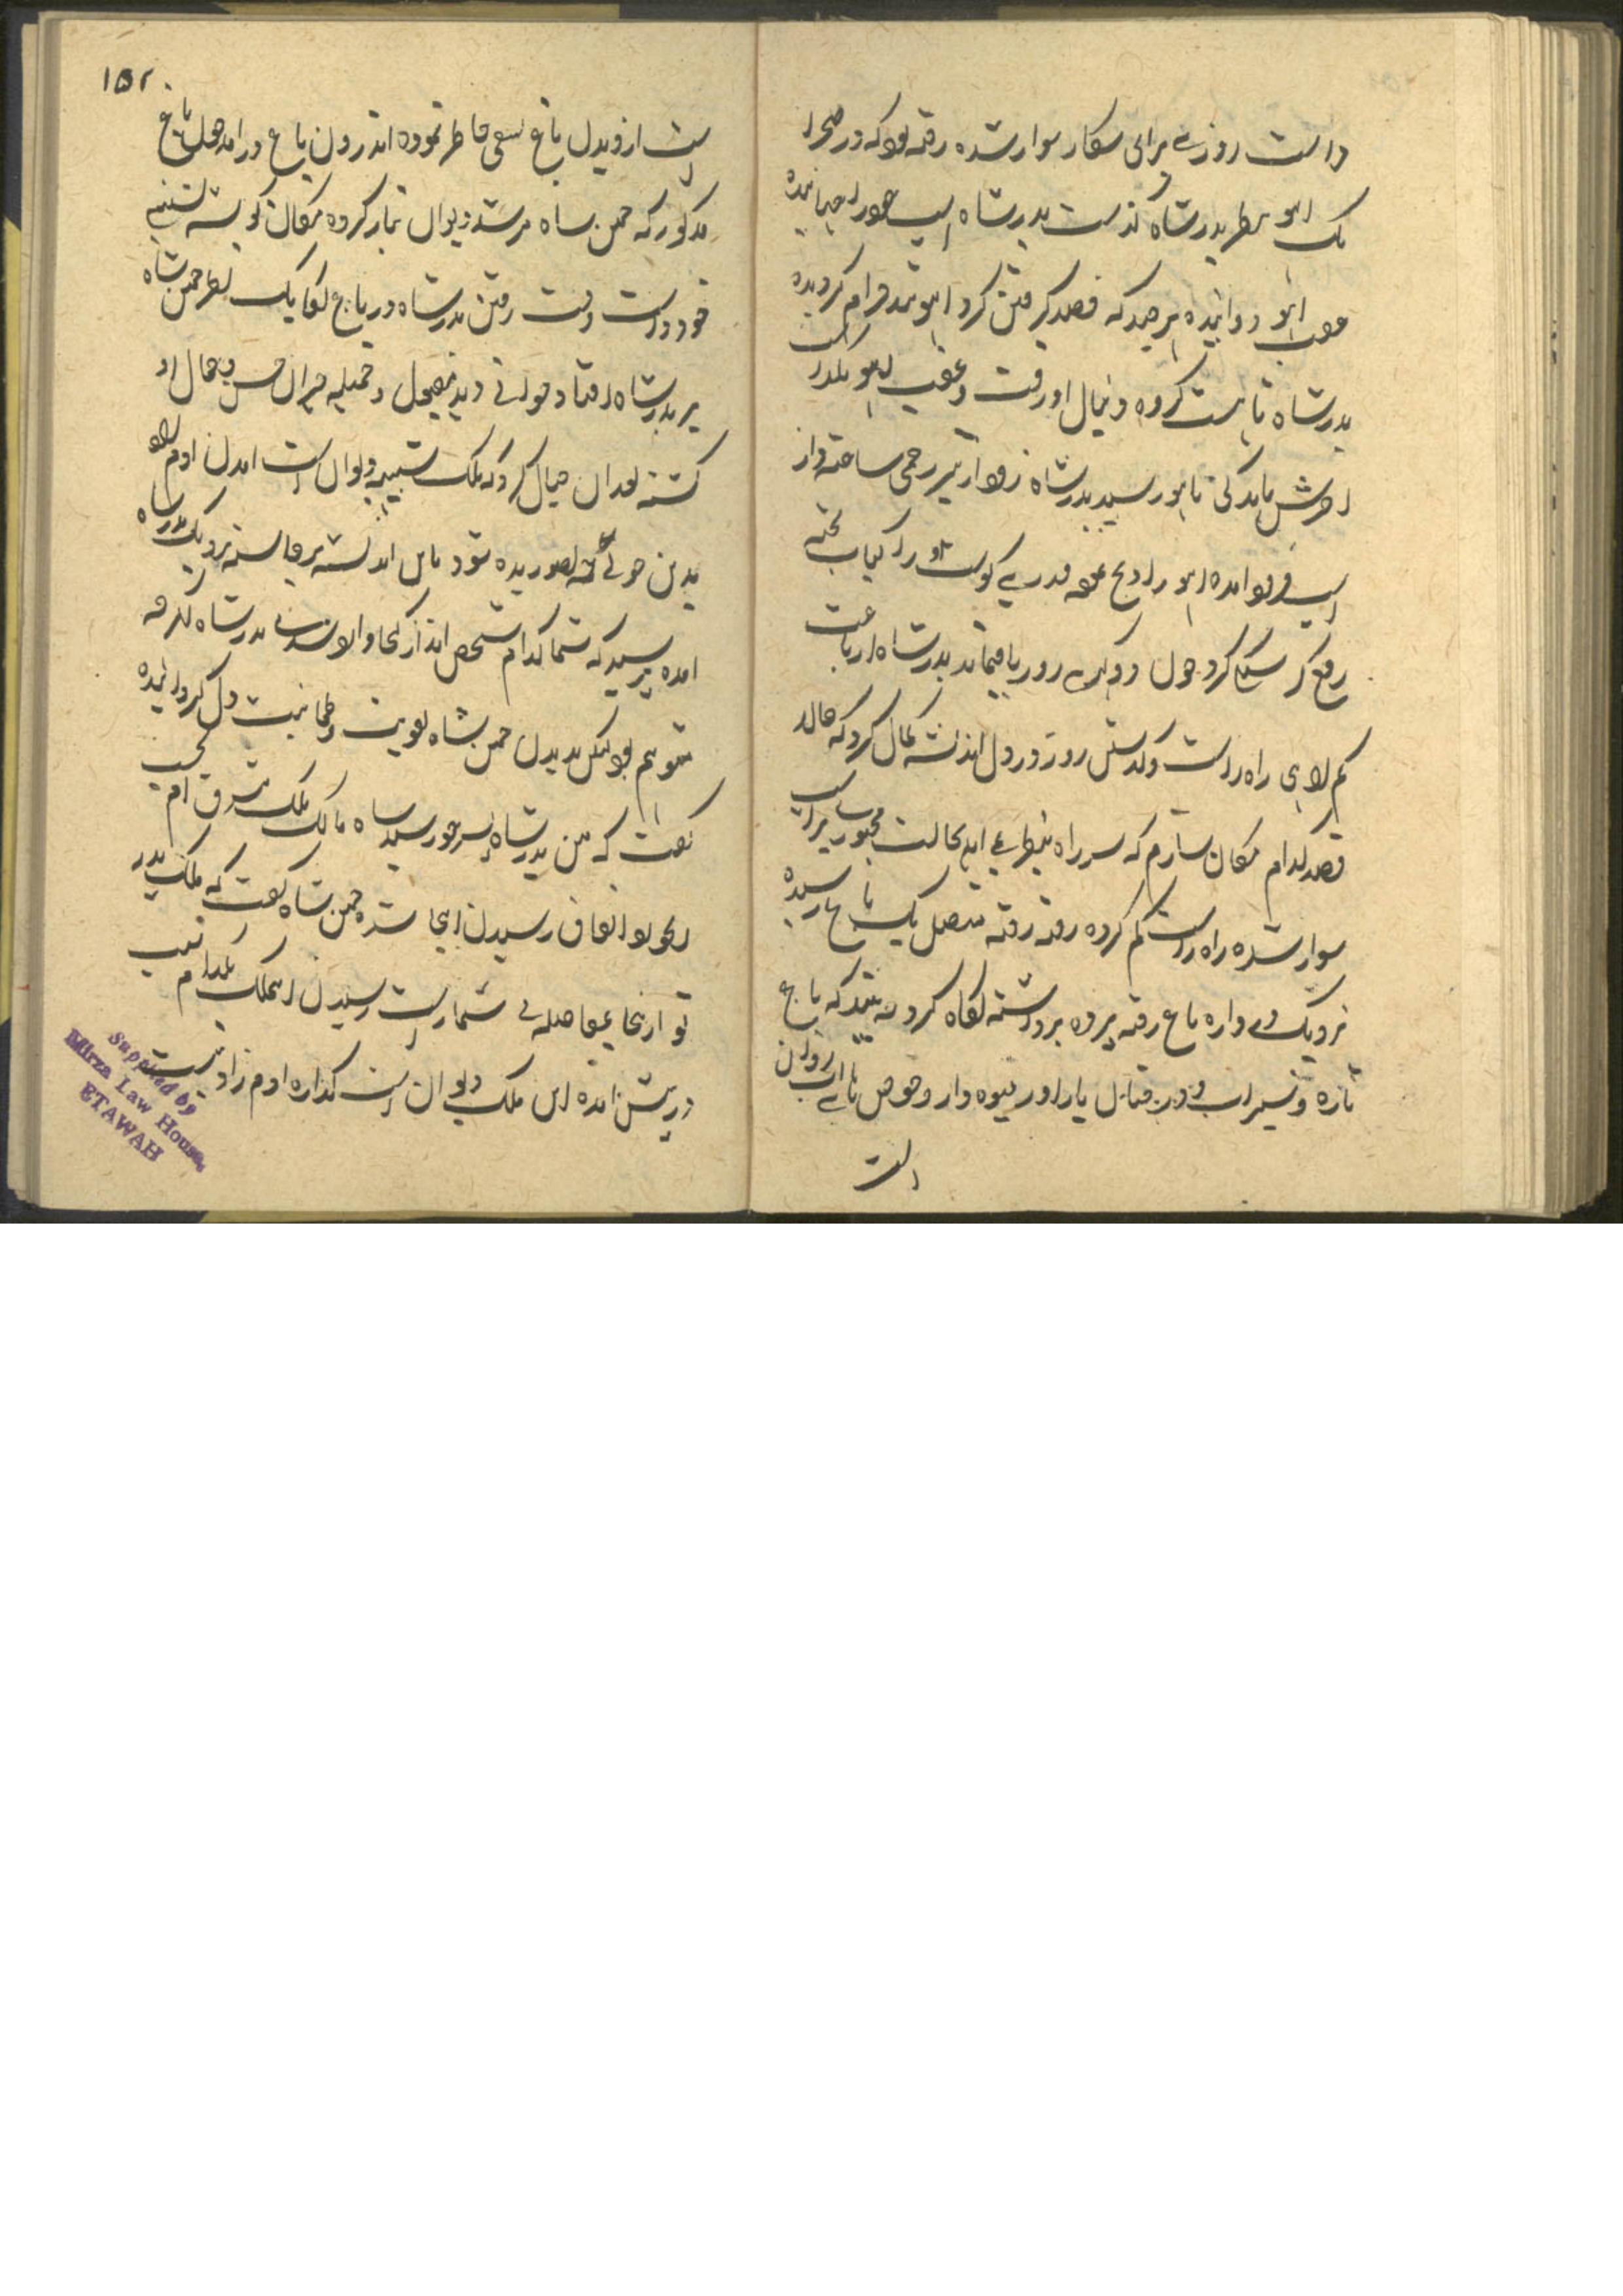 داشت روزے برای شکار سوار شده رفته بود که در صحرا
یک اهو بنظر بدرشاه گذشت بدرشاه اسپ خود را جهانیده
عقب اهو دوانیده هر چند که قصد گرفتن کرد اهو تند خرام گردیده
بدرشاه تاخت کرده دنبال او رفت و عقب اهو نگذاشت
اخرش باندگی تا اهو رسید بدرشاه زود از تیر زخمی ساخته و از
اسپ فرود امده اهو را ذبح نموده قدرے گوشت او را کباب پخته
رفع گرسنگی کرد چون دو گهرے روز باقیماند بدرشاه از باعث
گم راهی راه راست و گذشتن روز در دل اندیشه کمال کرد که حالا
قصد کدام مکان سازم که سر راه بنظر نمی اید بحالت مجبور بر اسپ
سوار شده راه راست گم کرده رفته رفته متصل یک باغ تا رسیده
نزدیک دروازه باغ رفته پرده برداشته نگاه کرد می بیند که باغ
تازه و سیراب و درختان باراور میوه دار و حوض با اب روان
است
۱۵۲
است از دیدن باغ تسفی خاطر نموده اندرون باغ درامد چون باغ
مذکور که چمن شاه مرشد دیوان تیار کرده مکان گوشه نشینی
خود داشت وقت رفتن بدرشاه در باغ نگاه یک بنظر چمن شاه
بر بدرشاه افتاد جوانے دید شکیل و جمیله حیران حسن و جمال او
گشته بعد ان خیال کرد که ملک شبیه دیوان است امدن ادم زاد
بدین خوبی گه بصور بده شود باین اندیشه برخاسته نزدیک بدرشاه
امده پرسید که شما کدام شخص اند از کجا والا شدند بدرشاه اگرچه
متوهم بود لیکن بدیدن چمن شاه تقویت و طمانیت دل گردانیده
گفت که من بدرشاه پسر خورشید شاه مالک ملک مشرق ام بحسب
ابخور بود اتفاق رسیدن اینجا شده چمن شاه گفت که ملک پدر
تو ازینجا بفاصله بی شمار است رسیدن اینملک بکدام سبب
درپیش امده این ملک دیوان است گذاره ادم زاد نیست
Supplied by
Mirza Law House,
ETAWAH